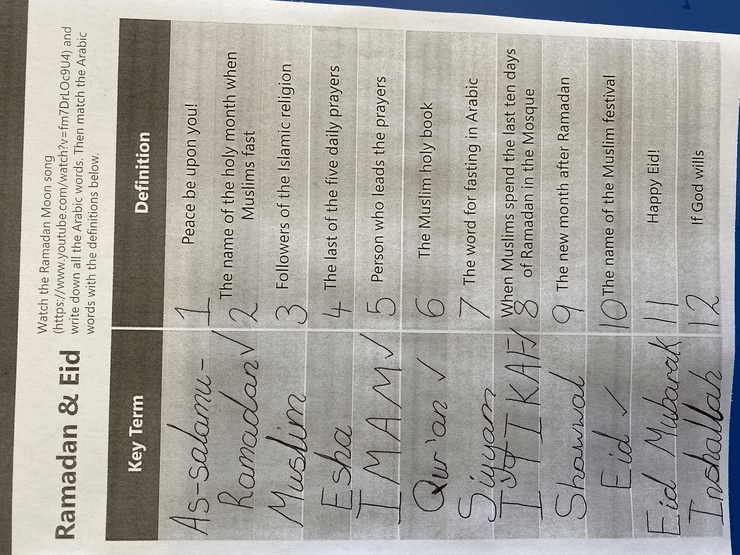 Ramadan & Eid
Watch the Ramadan Moon song
(https://www.youtube.com/watch?v=fm7DrLOc9U4) and
write down all the Arabic words. Then match the Arabic
words with the definitions below.
Key Term Definition
As-salamu- 1 Peace be upon you!
Ramadan ✓ 2 The name of the holy month when
Muslims fast
Muslim 3 Followers of the Islamic religion
Esha 4 The last of the five daily prayers
IMAM ✓ 5 Person who leads the prayers
Qur'an ✓ 6 The Muslim holy book
Siyyam 7 The word for fasting in Arabic
ITIKAF ✓ 8 When Muslims spend the last ten days
of Ramadan in the Mosque
Shawwal 9 The new month after Ramadan
Eid ✓ 10 The name of the Muslim festival
Eid Mubarak 11 Happy Eid!
Inshallah 12 If God wills